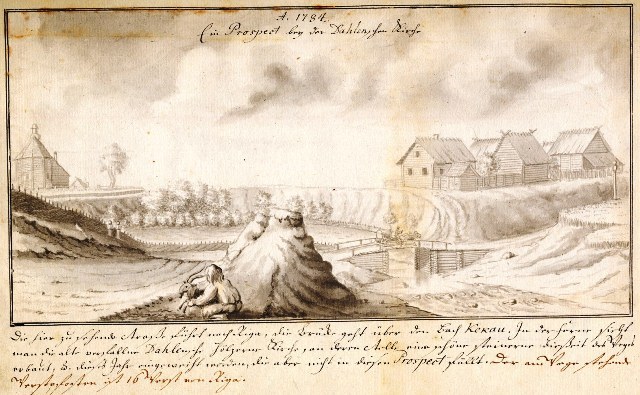 A. 1784.
Ein Prospect bey der Dahlenschen Kirche
Die hier zu sehende Straße führt nach Riga, die Brücke geht über den Bach Kekau. In der Ferne sieht
man die alte verfallene Dahlensche hölzerne Kirche, an deren Stelle eine schöne steinerne diesseit des Weges
erbaut, u. dieses Jahr eingeweiht worden, die aber nicht in diesen Prospect fällt. Der am Wege stehende
Werstpfosten ist 16 Werst von Riga.